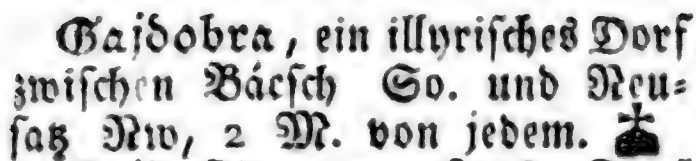 Gajdobra, ein illyrisches Dorf
zwischen Bácsch So. und Neu-
satz Nw, 2 M. von jedem.